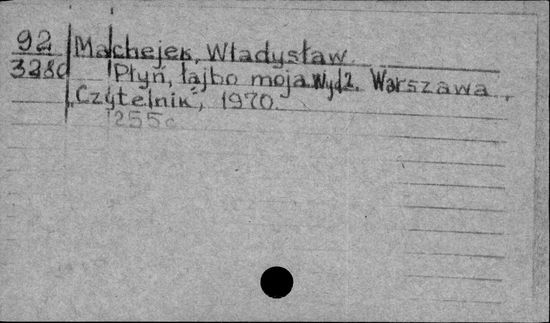 92 Machejek, Władysław
3280 Płyń, łajbo moja. Wyd 2. Warszawa,
"Czytelnik", 1970.
255 c